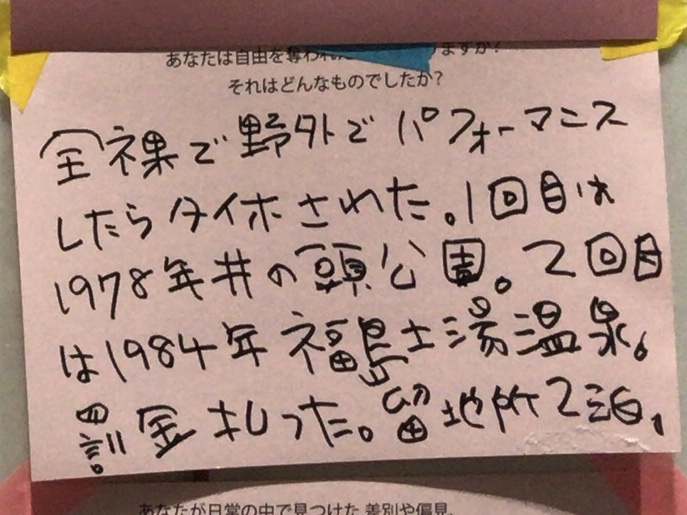 あなたは自由を奪われ
ますか?
それはどんなものでしたか?
全裸で野外でパフォーマンス
したらタイホされた。1回目は
1978年井の頭公園。2回目
は1984年福島土湯温泉。
罰金払った。留地所2泊。
あなたが日常の中で見つけた 差別や偏見、